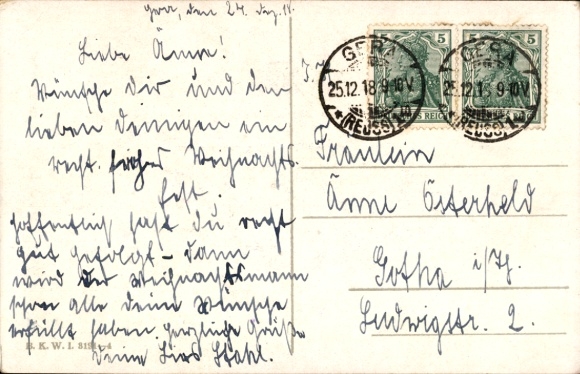 Gera, den 24. Dez. 18.
Liebe Änne!
Wünsche Dir und den
lieben Deinigen ein
recht frohes Weihnachts-
fest.
Hoffentlich hast Du recht
gut gefolgt - dann
wird der Weihnachtsmann
schon alle deine Wünsche
erfüllt haben. Herzliche Grüße
Deine Stahl.
B. K. W. I.
5 5
GERA
25.12.18 9-10V
*(REUSS)
GERA
25.12.18 9-10V
*(REUSS)
Fräulein
Änne Österheld
Gotha i/Th.
Ludwigstr. 2.